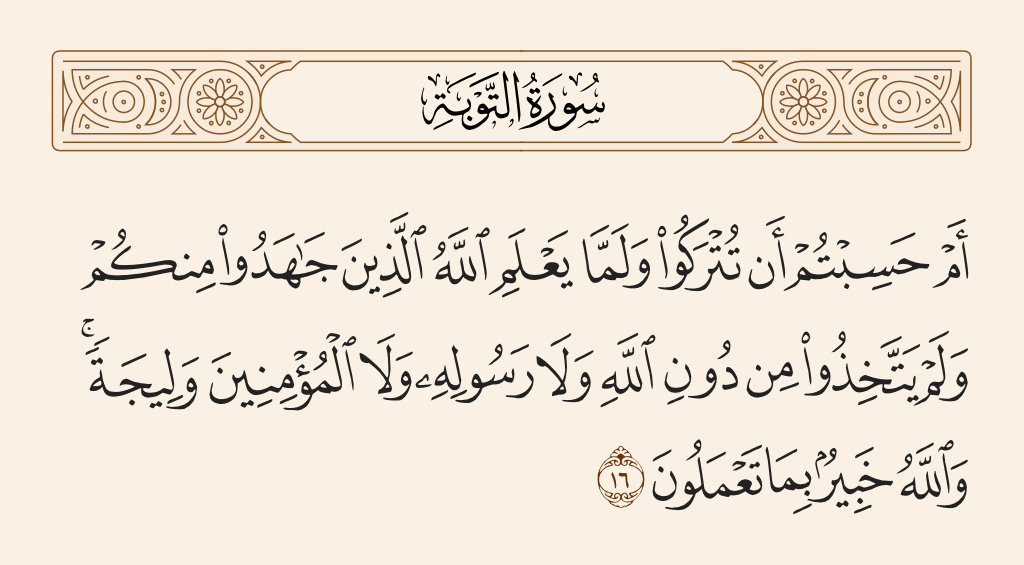 سُورَةُ التَّوْبَةِ
أَمْ حَسِبْتُمْ أَن تُتْرَكُوا۟ وَلَمَّا يَعْلَمِ ٱللَّهُ ٱلَّذِينَ جَـٰهَدُوا۟ مِنكُمْ
وَلَمْ يَتَّخِذُوا۟ مِن دُونِ ٱللَّهِ وَلَا رَسُولِهِۦ وَلَا ٱلْمُؤْمِنِينَ وَلِيجَةً ۚ
وَٱللَّهُ خَبِيرٌۢ بِمَا تَعْمَلُونَ ١٦